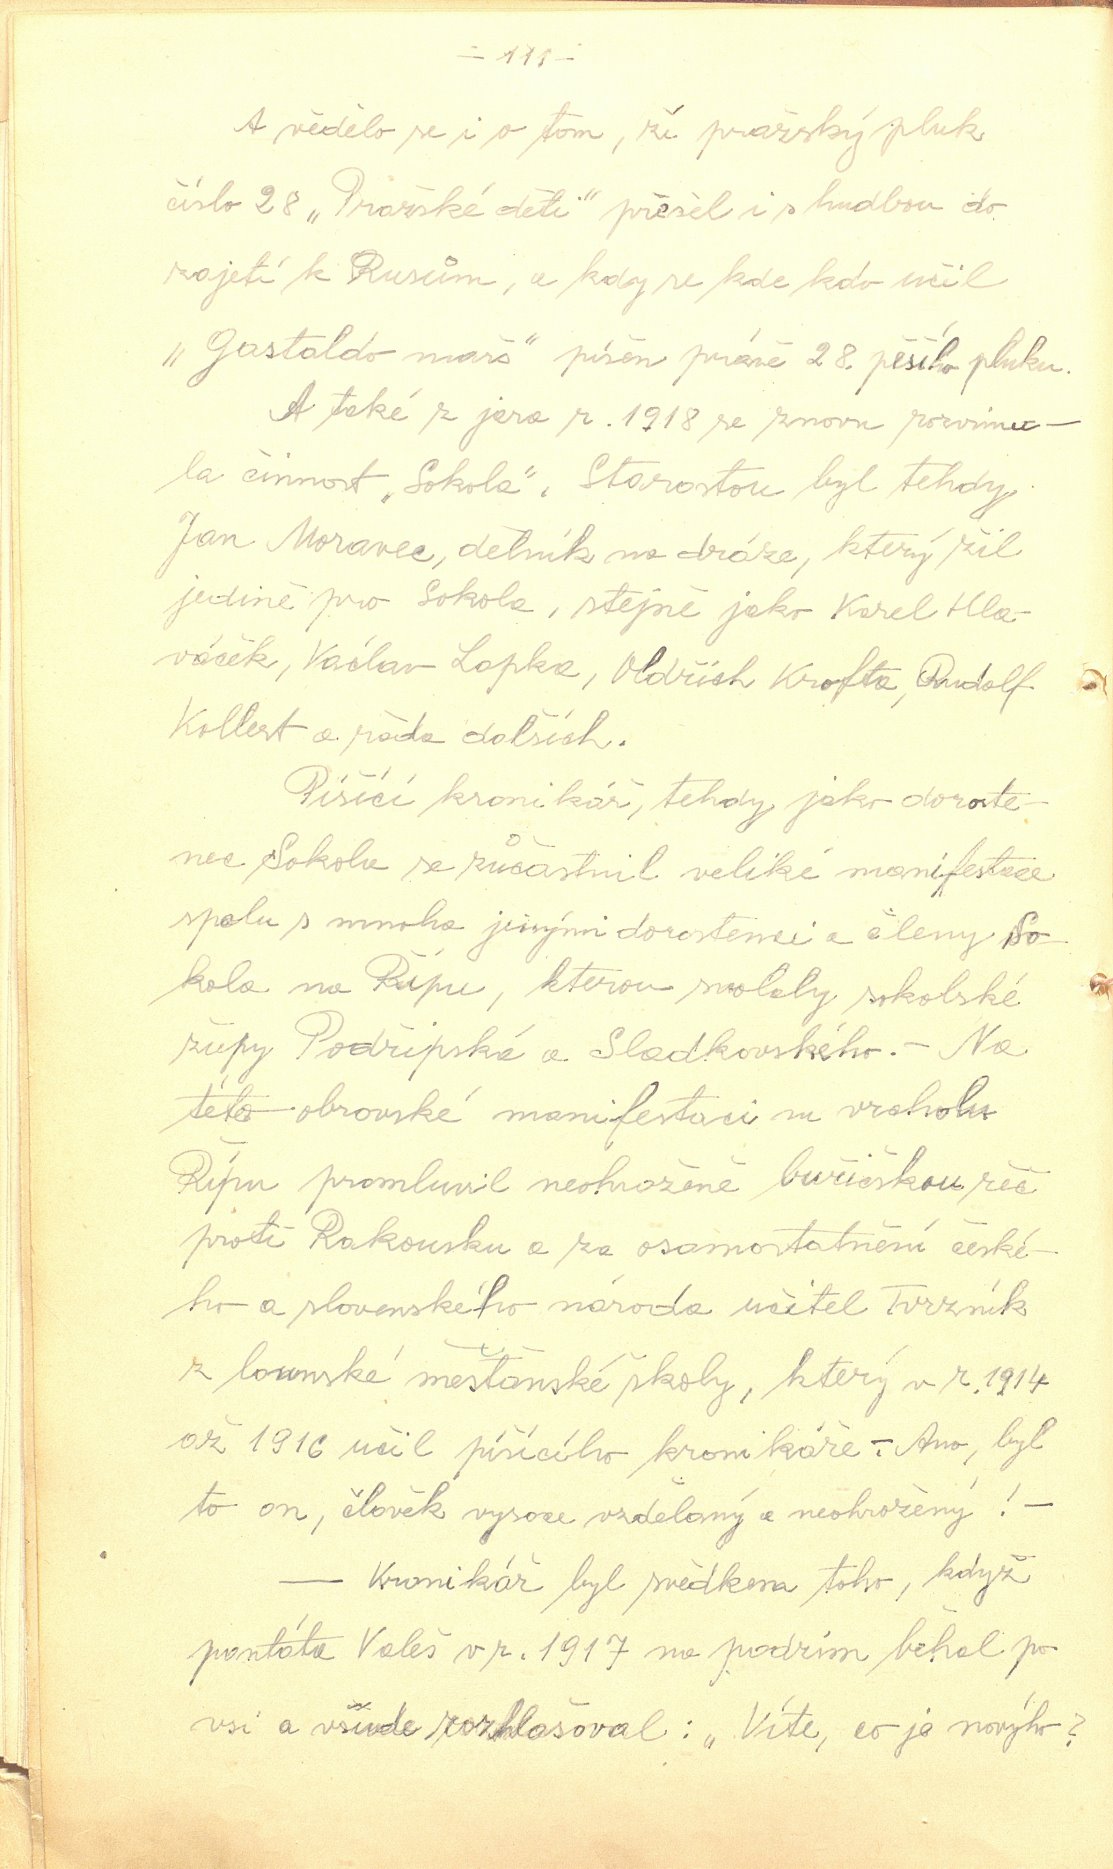 – 111 –
A vědělo se i o tom, že pražský pluk
číslo 28 „Pražské děti" přešel i s hudbou do
zajetí k Rusům, a kdy se kde kdo učil
„Gastaldo marš" písěn právě 28. pěšího pluku.
A také z jara r. 1918 se znovu rozvinu–
la činnost „Sokola". Starostou byl tehdy
Jan Moravec, dělník na dráze, který žil
jedině pro Sokola, stejně jako Karel Hla–
váček, Václav Lapka, Oldřich Krofta, Rudolf
Kollert a řada dalších.
Píšící kronikář, tehdy jako doroste–
nec Sokola se zúčastnil veliké manifestace
spolu s mnoha jinými dorostenci a členy So–
kola na Řípu, kterou svolaly sokolské
župy Podřipská a Sladkovského. – Na
této obrovské manifestaci na vrcholu
Řípu promluvil neohroženě buřičskou řeč
proti Rakousku a za osamostatnění české–
ho a slovenského národa učitel Tvrzník
z lounské měšťanské školy, který v r. 1914
až 1916 učil píšícího kronikáře. – Ano, byl
to on, člověk vysoce vzdělaný a neohrožený! –
— Kronikář byl svědkem toho, když
pantáta Valeš v r. 1917 na podzim běhal po
vsi a všude rozhlašoval: „Víte, co je novýho?